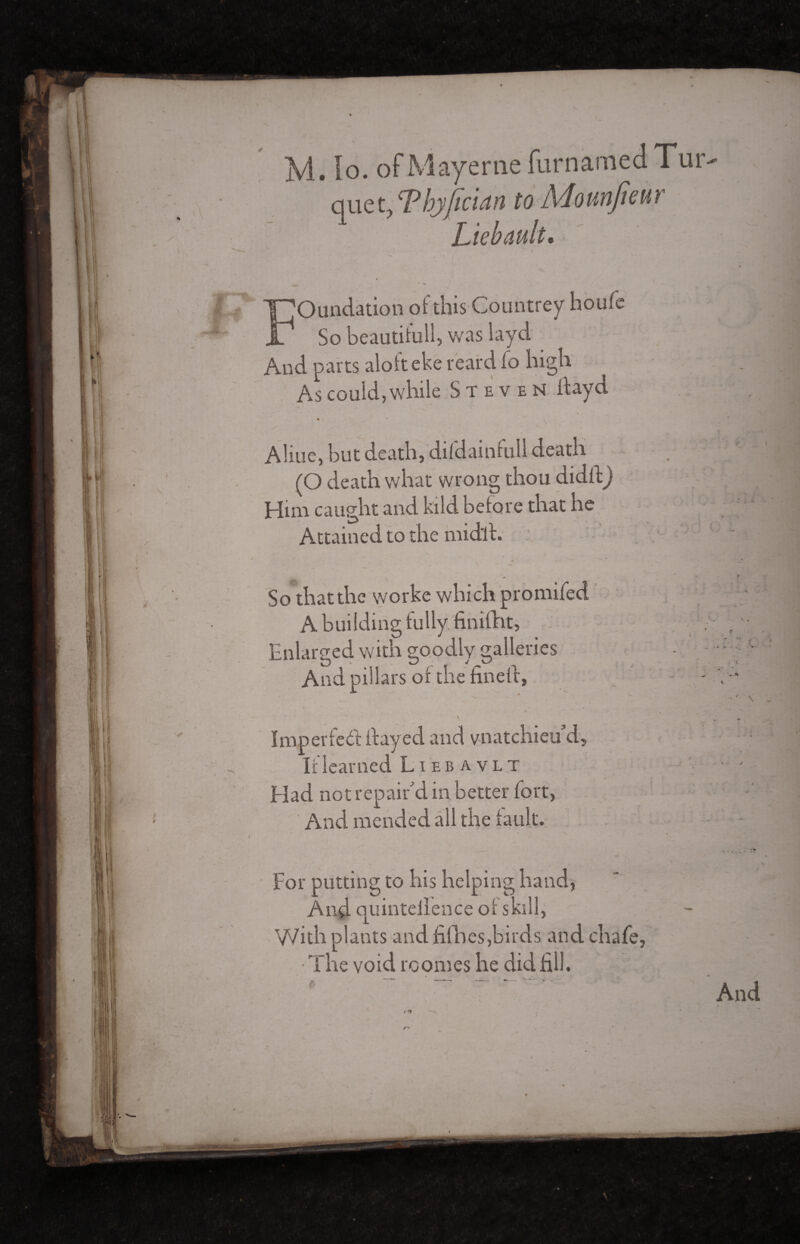 M. Io. of Mayerne ſurnamed Tur-
quet, Phyſician to Mounſieur
Liebault.
FOundation of this Countrey houſe
So beautifull, was layd
And parts aloft eke reard ſo high
As could, while STEVEN ſtayd
Aliue, but death, diſdainfull death
(O death what wrong thou didſt)
Him caught and kild before that he
Attained to the midſt.
So that the worke which promiſed
A building fully finiſht,
Enlarged with goodly galleries
And pillars of the fineſt,
Imperfect ſtayed and vnatchieu'd,
If learned LIEBAVLT
Had not repair'd in better ſort,
And mended all the fault.
For putting to his helping hand,
And quinteſſence of skill,
With plants and fiſhes, birds and chaſe,
The void roomes he did fill.
And